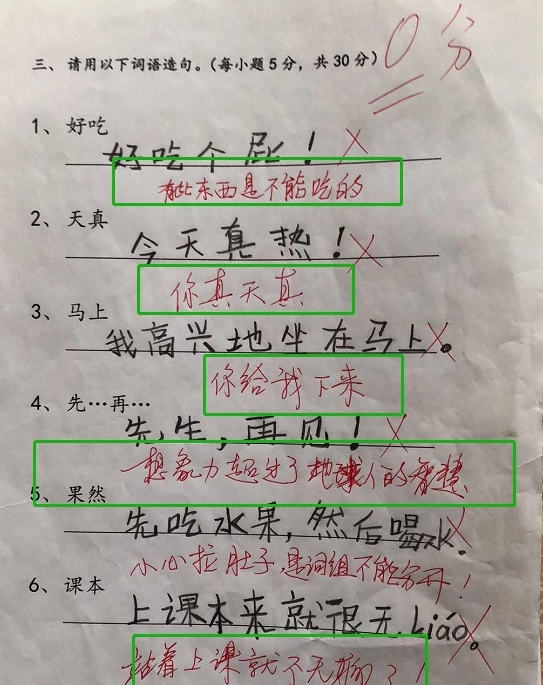 0分
三、请用以下词语造句。(每小题5分，共30分)
1、好吃
好吃个屁！
有些东西是不能吃的
2、天真
今天真热！
你真天真
3、马上
我高兴地坐在马上。
你给我下来
4、先…再…
先生，再见！
想象力超过了地球人的智慧
5、果然
先吃水果，然后喝水。
小心拉肚子，是词组不能分开！
6、课本
上课本来就很无liáo。
站着上课就不无聊了！